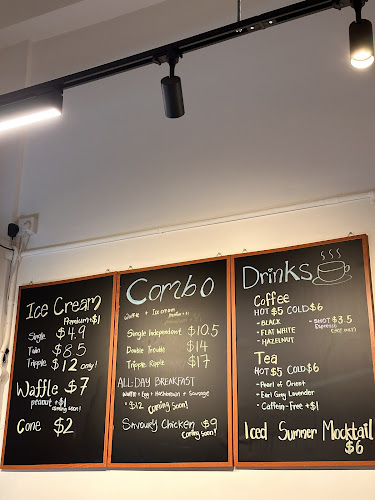 Ice Cream
Premium +$1
Single $4.9
Twin $8.5
Tripple $12 cony!
Waffle $7
peanut +$1
coming soon!
Cone $2
Combo
Waffle + Ice cream
Premium +$1
Single Independent $10.5
Double Trouble $14
Tripple Ripple $17
ALL-DAY BREAKFAST
Waffle + Egg + Hashbrown + Sausage
$12 Coming Soon!
Savoury Chicken $9
Coming soon!
Drinks
Coffee
HOT $5 COLD $6
- BLACK
- SHOT $3.5
Espresso (HOT ONLY)
- FLAT WHITE
- HAZELNUT
Tea
HOT $5 COLD $6
- Pearl of Orient
- Earl Grey Lavender
- Caffeine-Free +$1
Iced Summer Mocktail
$6